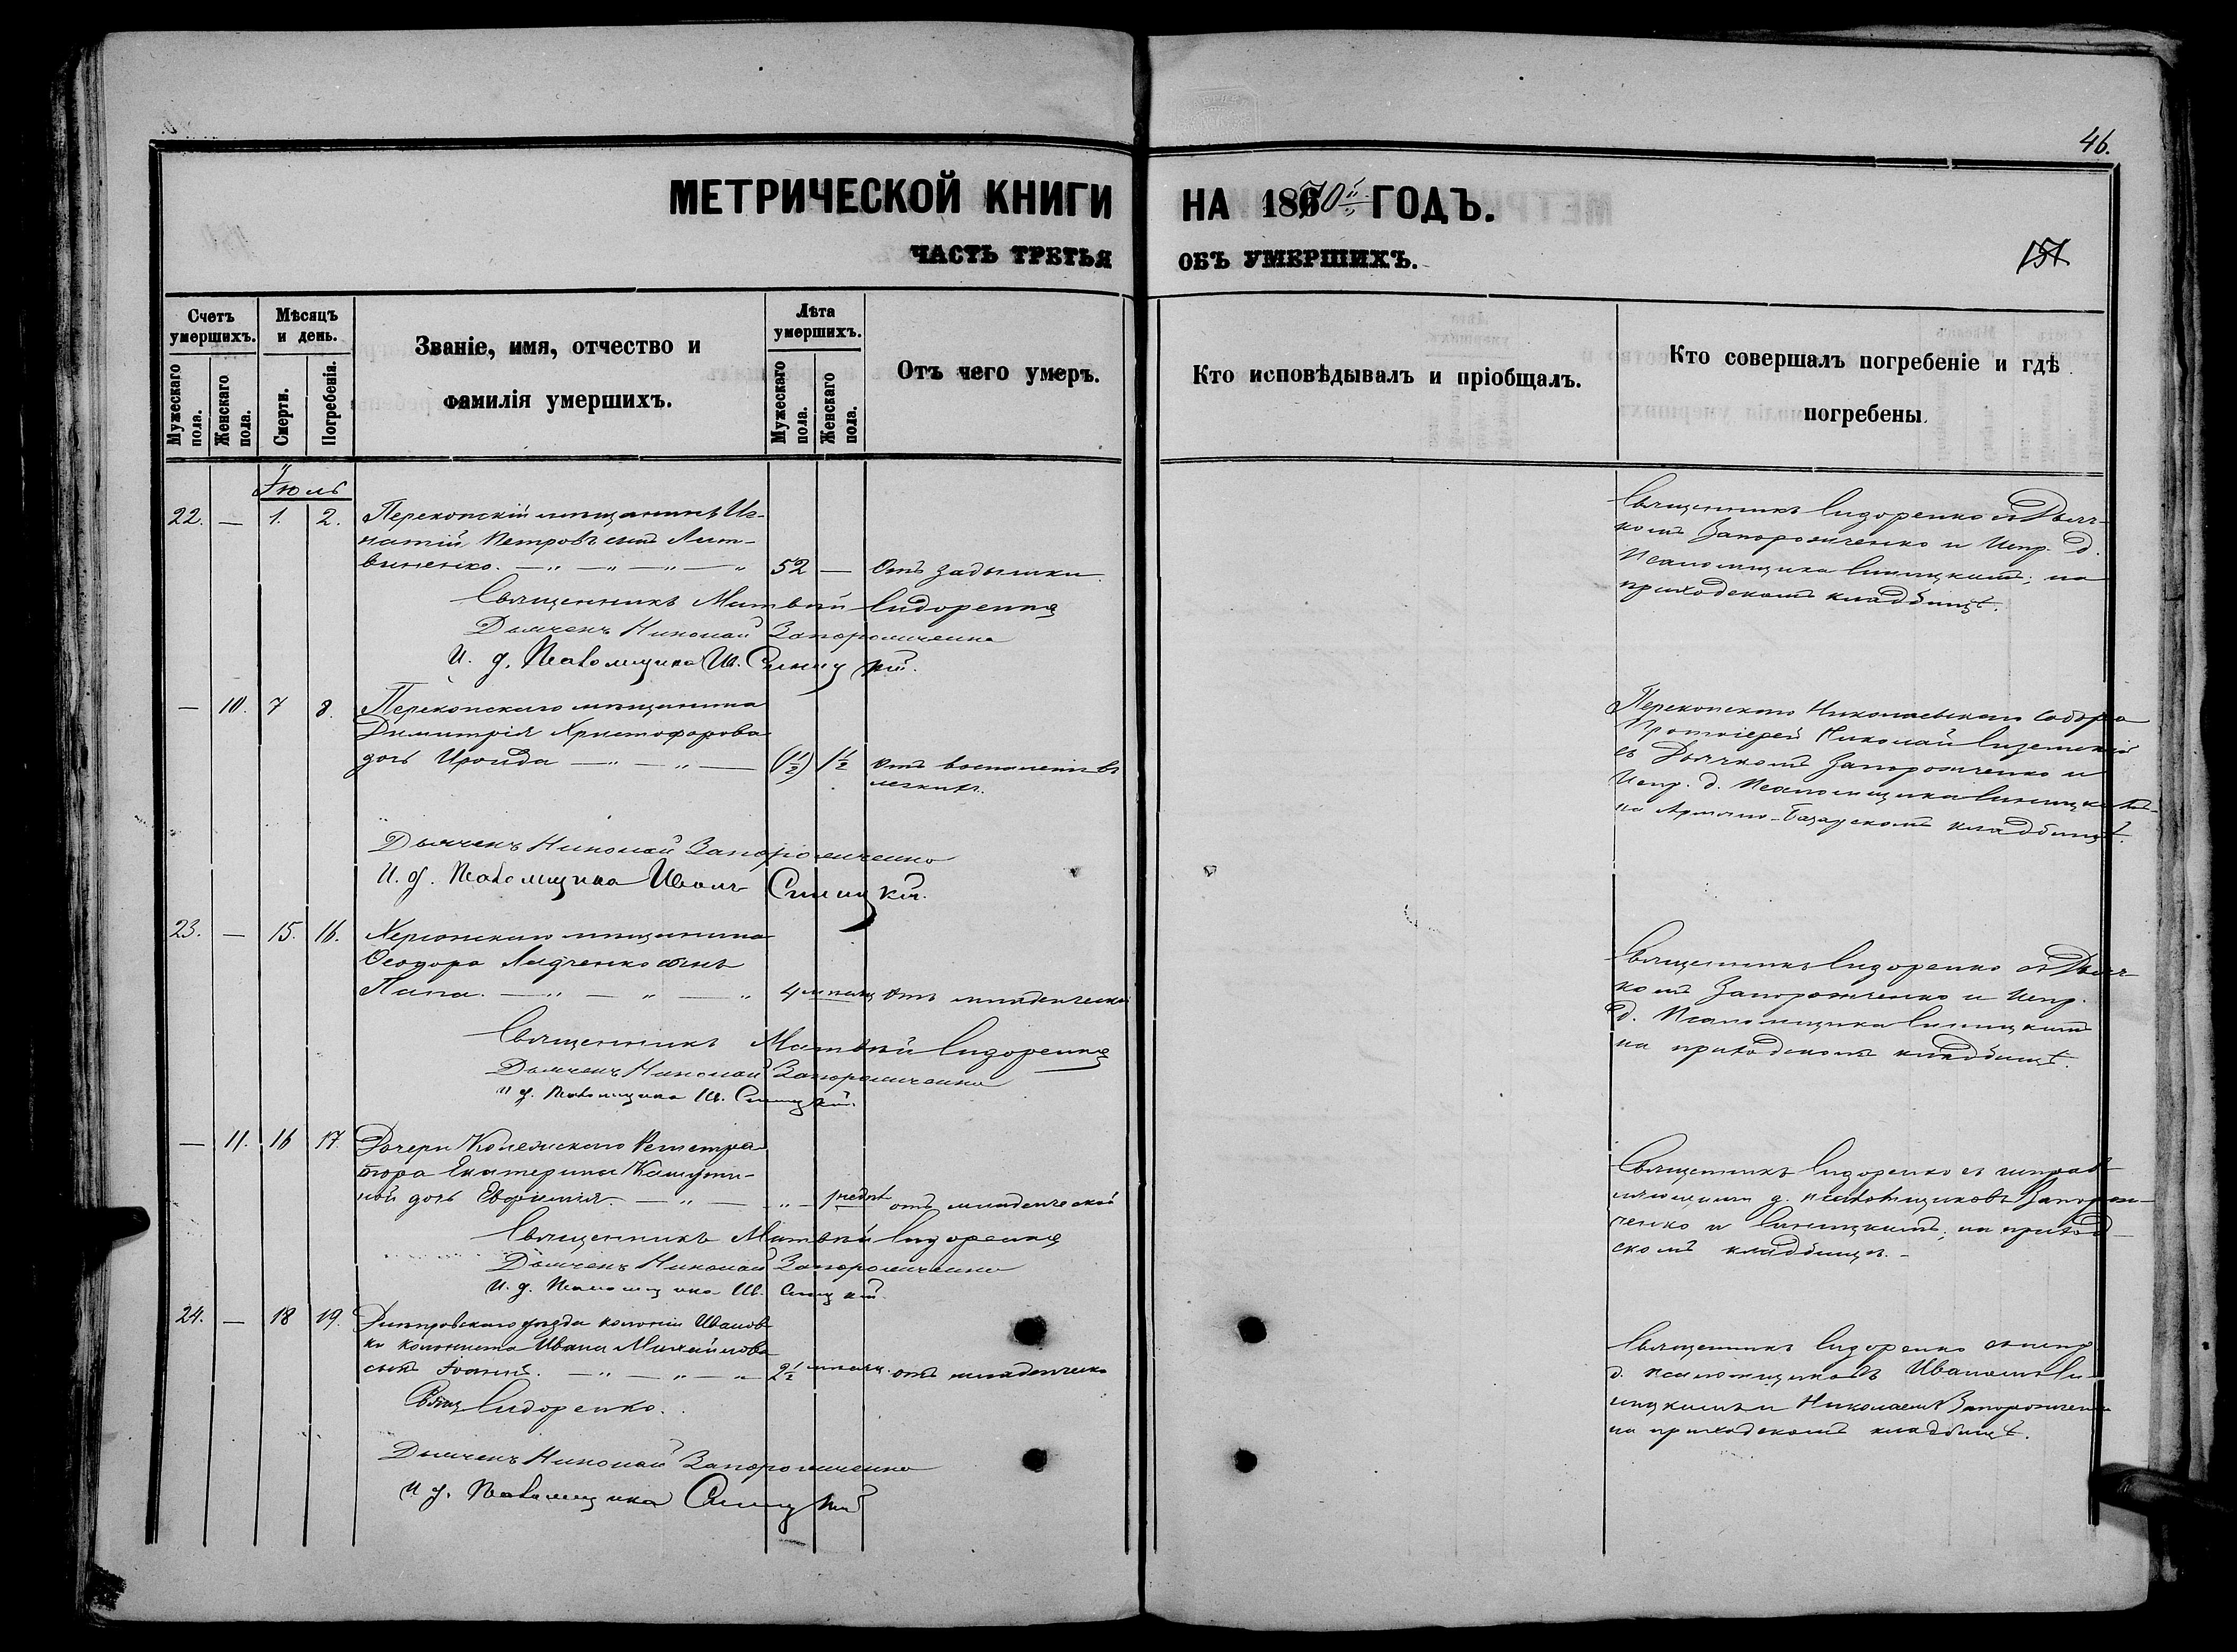 46.
МЕТРИЧЕСКОЙ КНИГИ НА 1870й ГОДЪ.
ЧАСТЬ ТРЕТЬЯ ОБЪ УМЕРШИХЪ.
151
Счетъ умершихъ.
Мужескаго пола.
Женскаго пола.
Мѣсяцъ и день.
Смерти.
Погребенія.
Званіе, имя, отчество и
фамилія умершихъ.
Лѣта умершихъ.
Мужескаго пола.
Женскаго пола.
Отъ чего умеръ.
Кто исповѣдывалъ и пріобщалъ.
Кто совершалъ погребеніе и гдѣ
погребены.
Іюль
22. — 1. 2. Перекопскій мѣщанинъ Иг-
натій Петровъ сынъ Лит-
виненко. — „ — „ — „ — „ 52 — Отъ задышки.
Священникъ Матвѣй Сидоренко
Дьячекъ Николай Запорожченко
И. д. Псаломщика Ив. Синицкій.
Священникъ Сидоренко съ Дьяч-
комъ Запорожченко и Испр. д.
Псаломщика Синицкимъ; на
приходскомъ кладбищѣ.
— 10. 7 8. Перекопскаго мѣщанина
Димитрія Христофорова
дочь Ироида — „ — „ — (1½) 1½ Отъ воспаленія въ
легкихъ.
Дьячекъ Николай Запорожченко
И. д. Псаломщика Иванъ Синицкій.
Перекопскаго Николаевскаго собора
Протоіерей Николай
съ Дьячкомъ Запорожченко и
Испр. д. Псаломщика Синицкимъ
на Армяно-Базарскомъ кладбищѣ.
23. — 15. 16. Херсонскаго мѣщанина
Ѳеодора сынъ
— „ — „ — „ 4 мѣсяц Отъ младенческой
Священникъ Матвѣй Сидоренко
Дьячекъ Николай Запорожченко
И д. Псаломщика Ив. Синицкій.
Священникъ Сидоренко съ Дьяч-
комъ Запорожченко и Испр.
д. Псаломщика Синицкимъ
на приходскомъ кладбищѣ.
— 11. 16 17. Дочери Колежскаго Регистра-
тора Екатерины
ной дочь Евфимія. — „ — „ — 1 недѣл отъ младенческой
Священникъ Матвѣй Сидоренко
Дьячекъ Николай Запорожченко
И. д. Псаломщика Ив. Синицкій.
Священникъ Сидоренко съ исправ-
ляющими д. псаломщиковъ Запорож-
ченко и Синицкимъ; на приход-
скомъ кладбищѣ. —
24. — 18 19. Днѣпровскаго уѣзда колоніи Иванов-
ки колониста Ивана Михайлова
сынъ — „ — „ — „ 2½ мѣсяц. отъ младенческо
Свящ Сидоренко.
Дьячекъ Николай Запорожченко
И д. Псаломщика Синицкій
Священникъ Сидоренко съ испр
д. псаломщиковъ Иваномъ Си-
ницкимъ и Николаемъ Запорожченко
на приходскомъ кладбищѣ.